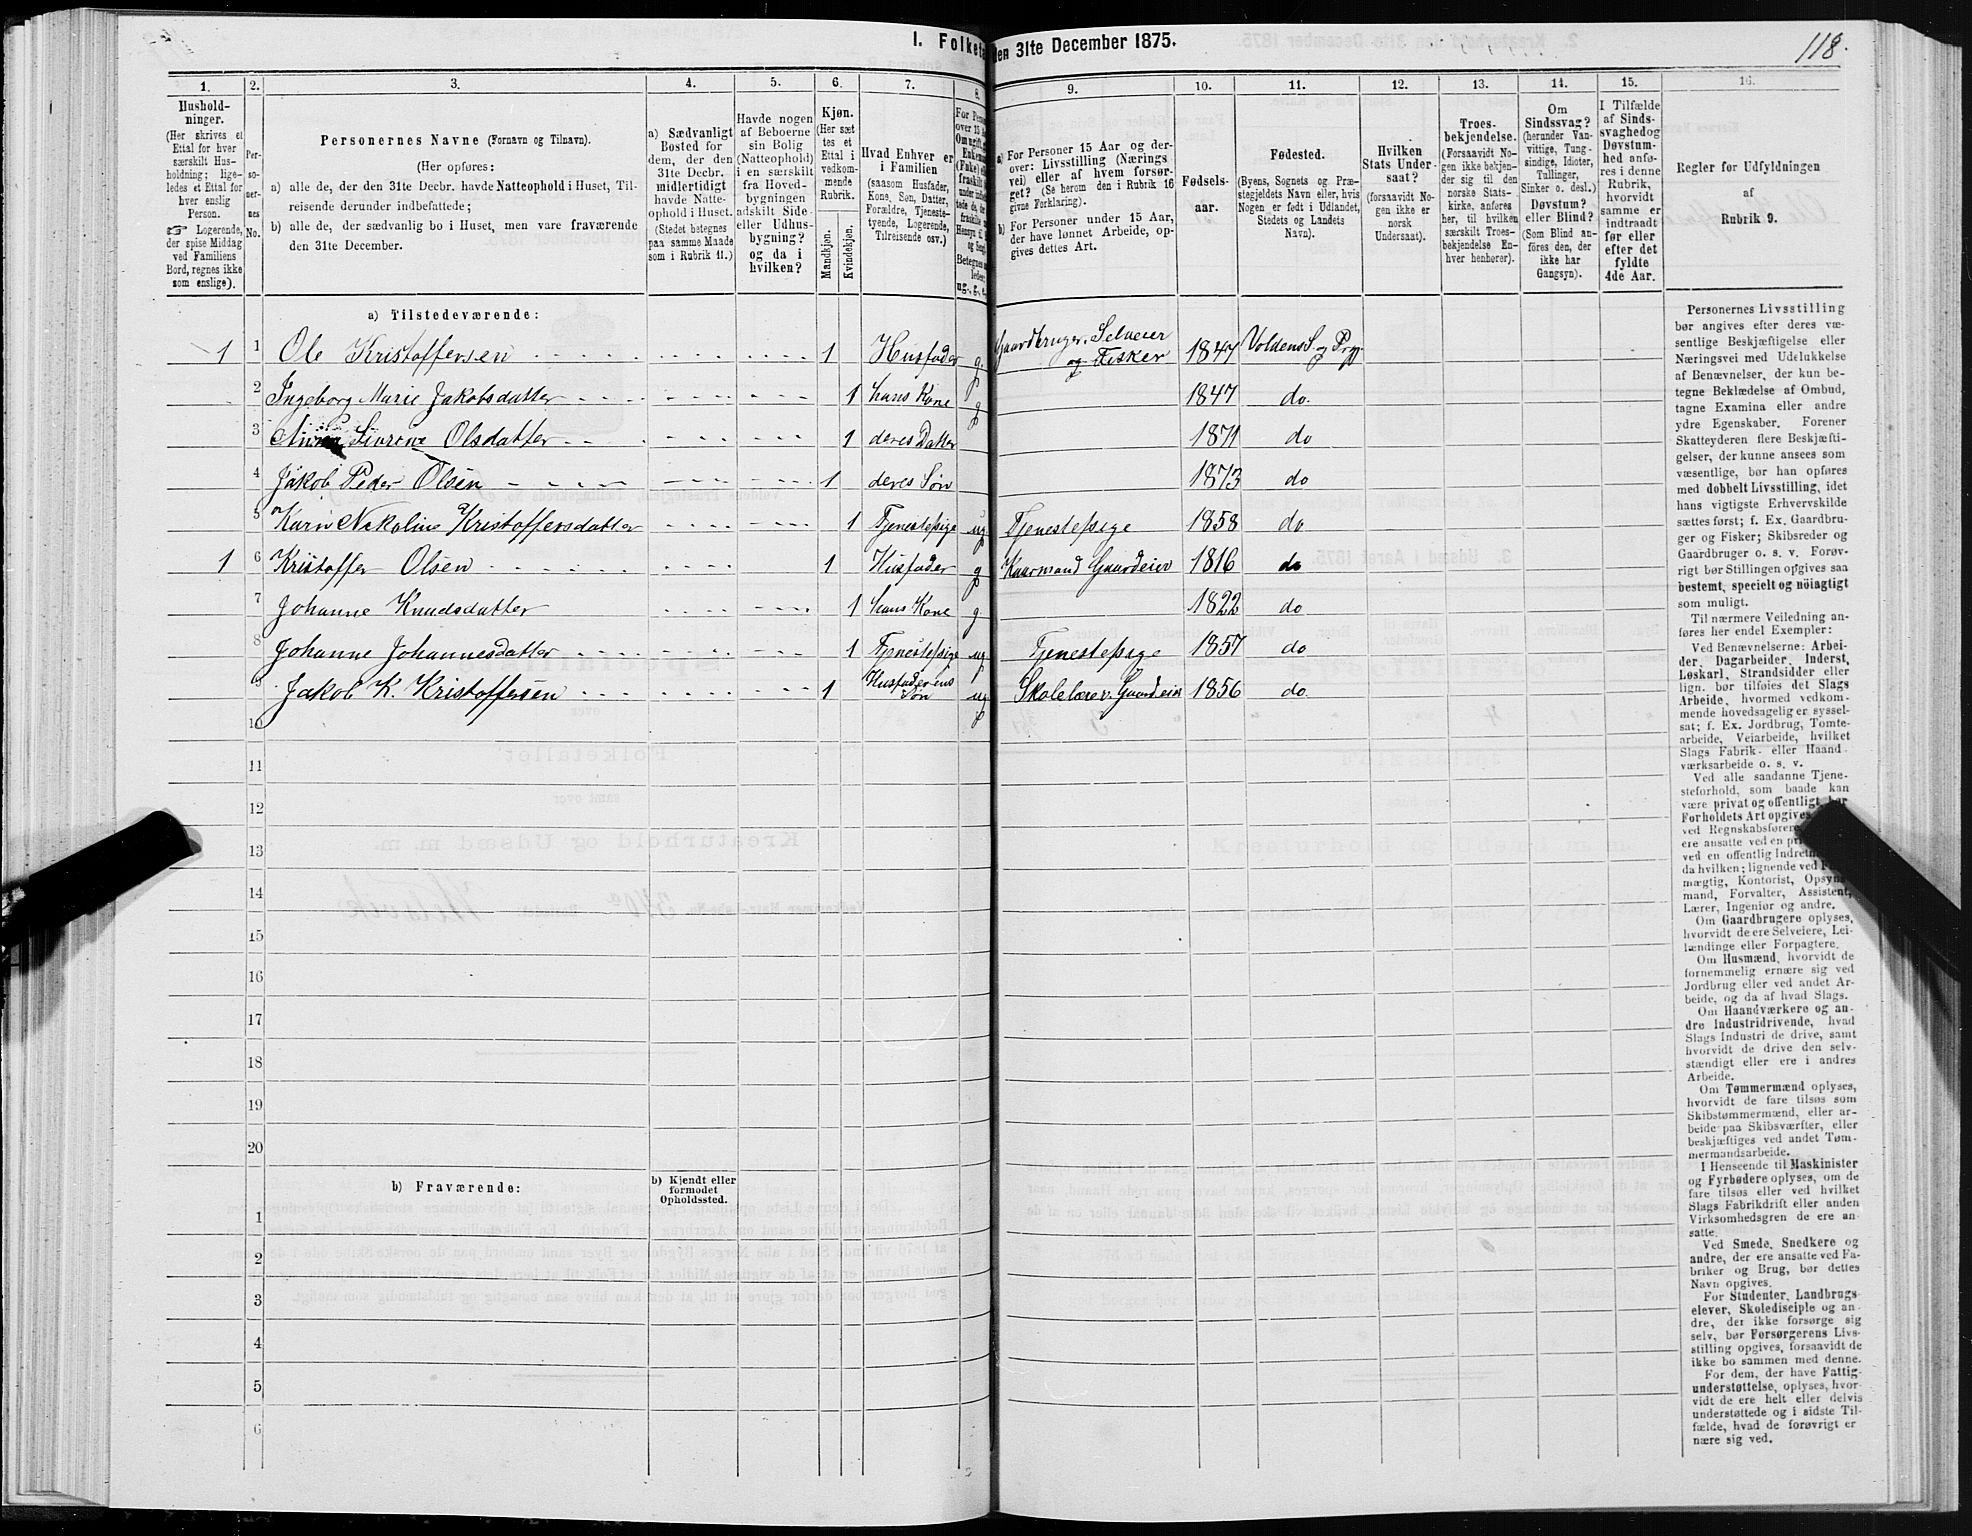 I. Folketa
den 31te December 1875.
118.
1.
2.
3.
4.
5.
6.
7.
8.
9.
10.
11.
12.
13.
14.
15.
16.
Hushold-
ninger.
(Her skrives et
Ettal for hver
særskilt Hus-
holdning; lige-
ledes et Ettal for
hver enslig
Person.
☞ Logerende,
der spise Middag
ved Familiens
Bord, regnes ikke
som enslige).
Per-
so-
ner-
nes
No.
Personernes Navne (Fornavn og Tilnavn).
(Her opføres:
a) alle de, der den 31te Decbr. havde Natteophold i Huset, Til-
reisende derunder indbefattede;
b) alle de, der sædvanlig bo i Huset, men vare fraværende
den 31te December.
a) Sædvanligt
Bosted for
dem, der den
31te Decbr.
midlertidigt
havde Natte-
ophold i Huset.
(Stedet betegnes
paa samme Maade
som i Rubrik 11.)
Havde nogen
af Beboerne
sin Bolig
(Natteophold)
i en særskilt
fra Hoved-
bygningen
adskilt Side-
eller Udhus-
bygning?
og da i
hvilken?
Kjøn.
(Her sæt
tes et
Ettal i
vedkom-
mende
Rubrik.
Mandkjøn.
Kvindekjøn.
Hvad Enhver er
i Familien
(saasom Husfader,
Kone, Søn, Datter,
Forældre, Tjeneste-
tyende, Logerende,
Tilreisende osv.)
For Perso
over 15 Aa
ug., g., e.,
a) For Personer 15 Aar og der-
over: Livsstilling (Nærings
vei) eller af hvem forsør-
get? (Se herom den i Rubrik 16
givne Forklaring).
b) For Personer under 15 Aar,
der have lønnet Arbeide, op-
gives dettes Art.
Fødsels-
aar.
Fødested.
(Byens, Sognets og Præ-
stegjeldets Navn eller, hvis
Nogen er født i Udlandet,
Stedets og Landets
Navn).
Hvilken
Stats Under-
saat?
(forsaavidt No-
gen ikke er
norsk
Undersaat).
Troes-
bekjendelse.
(Forsaavidt No-
gen ikke bekjen-
der sig til den
norske Stats-
kirke, anføres
her, til hvilken
særskilt Troes-
bekjendelse En-
hver henhører).
Om
Sindssvag?
(herunder Van-
vittige, Tung-
sindige, Idioter,
Tullinger,
Sinker o. desl.)
Døvstum?
eller Blind?
(Som Blind an-
føres den, der
ikke har
Gangsyn).
I Tilfælde
af Sinds-
svaghedog
Døvstum-
hed anfø-
res i denne
Rubrik,
hvorvidt
samme er
indtraadt
før eller
efter det
fyldte
4de Aar.
Regler for Udfyldningen
af
Rubrik 9.
a) Tilstedeværende:
1 1 Ole Kristoffersen 1 Husfader g. Gaardbruger, Selveier og Fisker 1847 Voldens S. og Prgj.
2 Ingeborg Marie Jakobsdatter 1 hans Kone g 1847 do.
3 Anna Sivrine Olsdatter 1 deres Datter 1871 do
4 Jakob Peder Olsen 1 deres Søn 1873 do
5 Karn Nikoline Kristoffersdatter 1 Tjenestepige ug Tjenestepige 1858 do
1 6 Kristoffer Olsen 1 Husfader g Kaarmand Gaardeier 1816 do
7 Johanne Knudsdatter 1 hans Kone g. 1822 do
8 Johanne Johannesdatter 1 Tjenestepige ug Tjenestepige 1857 do
9 Jakob K. Kristoffersen 1 Husfaderens Søn ug Skolelærer. Gaardeier 1856 do.
10
11
12
13
14
15
16
17
18
19
20
b) Fraværende:
b) Kjendt eller
formodet
Opholdssted.
1
2
3
4
5
6
Personernes Livsstilling
bør angives efter deres væ-
sentlige Beskjæftigelse eller
Næringsvei med Udelukkelse
af Benævnelser, der kun be-
tegne Beklædelse af Ombud,
tagne Examina eller andre
ydre Egenskaber. Forener
Skatteyderen flere Beskjæfti-
gelser, der kunne ansees som
væsentlige, bør han opføres
med dobbelt Livsstilling, idet
hans vigtigste Erhvervskilde
sættes først; f. Ex. Gaardbru-
ger og Fisker; Skibsreder og
Gaardbruger o. s. v. Forøv-
rigt bør Stillingen opgives saa
bestemt, specielt og nøiagtigt
som muligt.
Til nærmere Veiledning an-
føres her endel Exempler:
Ved Benævnelserne: Arbei-
der, Dagarbeider, Inderst,
Løskarl, Strandsidder eller
lign. bør tilføies det Slags
Arbeide, hvormed vedkom-
mende hovedsagelig er syssel-
sat; f. Ex. Jordbrug, Tomte-
arbeide, Veiarbeide, hvilket
Slags Fabrik- eller Haand
værksarbeide o. s. v.
Ved alle saadanne Tjene-
steforhold, som baade kan
være privat og offentligt, bør
Forholdets Art opgives,
ved Regnskabsførere
ere ansatte ved en pri
ved en offentlig Indretn
da hvilken; lignende ved F
mægtig, Kontorist, Opsyns
mand, Forvalter, Assistent,
Lærer, Ingeniør og andre.
Om Gaardbrugere oplyses,
hvorvidt de ere Selveiere, Lei-
lændinge eller Forpagtere.
Om Husmænd, hvorvidt de
fornemmelig ernære sig ved
Jordbrug eller ved andet Ar-
beide, og da af hvad Slags.
Om Haandværkere og an-
dre Industridrivende, hvad
Slags Industri de drive, samt
hvorvidt de drive den selv-
stændigt eller ere i andres
Arbeide.
Om Tømmermænd oplyses,
hvorvidt de fare tilsøs som
Skibstømmermænd, eller ar-
beide paa Skibsværfter, eller
beskjæftiges ved andet Tøm-
mermandsarbeide.
I Henseende til Maskinister
og Fyrbødere oplyses, om de
fare tilsøs eller ved hvilket
Slags Fabrikdrift eller anden
Virksomhedsgren de ere an-
satte.
Ved Smede, Snedkere og
andre, der ere ansatte ved Fa-
briker og Brug, bør dettes
Navn opgives.
For Studenter, Landbrugs-
elever, Skoledisciple og an-
dre, der ikke forsørge sig
selv, bør Forsørgerens Livs-
stilling opgives, forsaavidt de
ikke bo sammen med denne.
For dem, der have Fattig-
understøttelse, oplyses, hvor-
vidt de ere helt eller delvis
understøttede og i sidste Til-
fælde, hvad de forøvrigt er
nære sig ved.